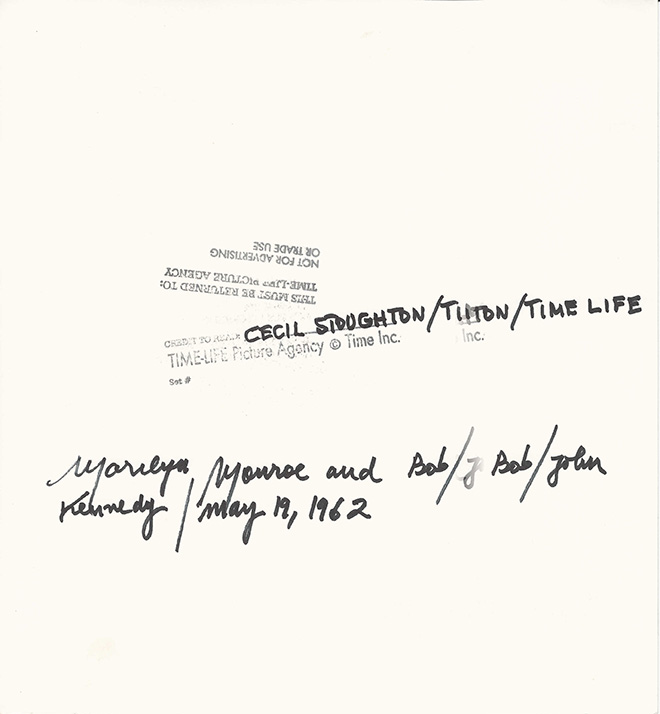 OR TRADE USE
NOT FOR ADVERTISING
TIME-LIFE PICTURE AGENCY
THIS MUST BE RETURNED TO:
CECIL STOUGHTON/TIITON/TIME LIFE
TIME-LIFE Picture Agency © Time Inc. Inc.
Set #
Marilyn Monroe and Bob/J Bob/John
Kennedy/May 19, 1962